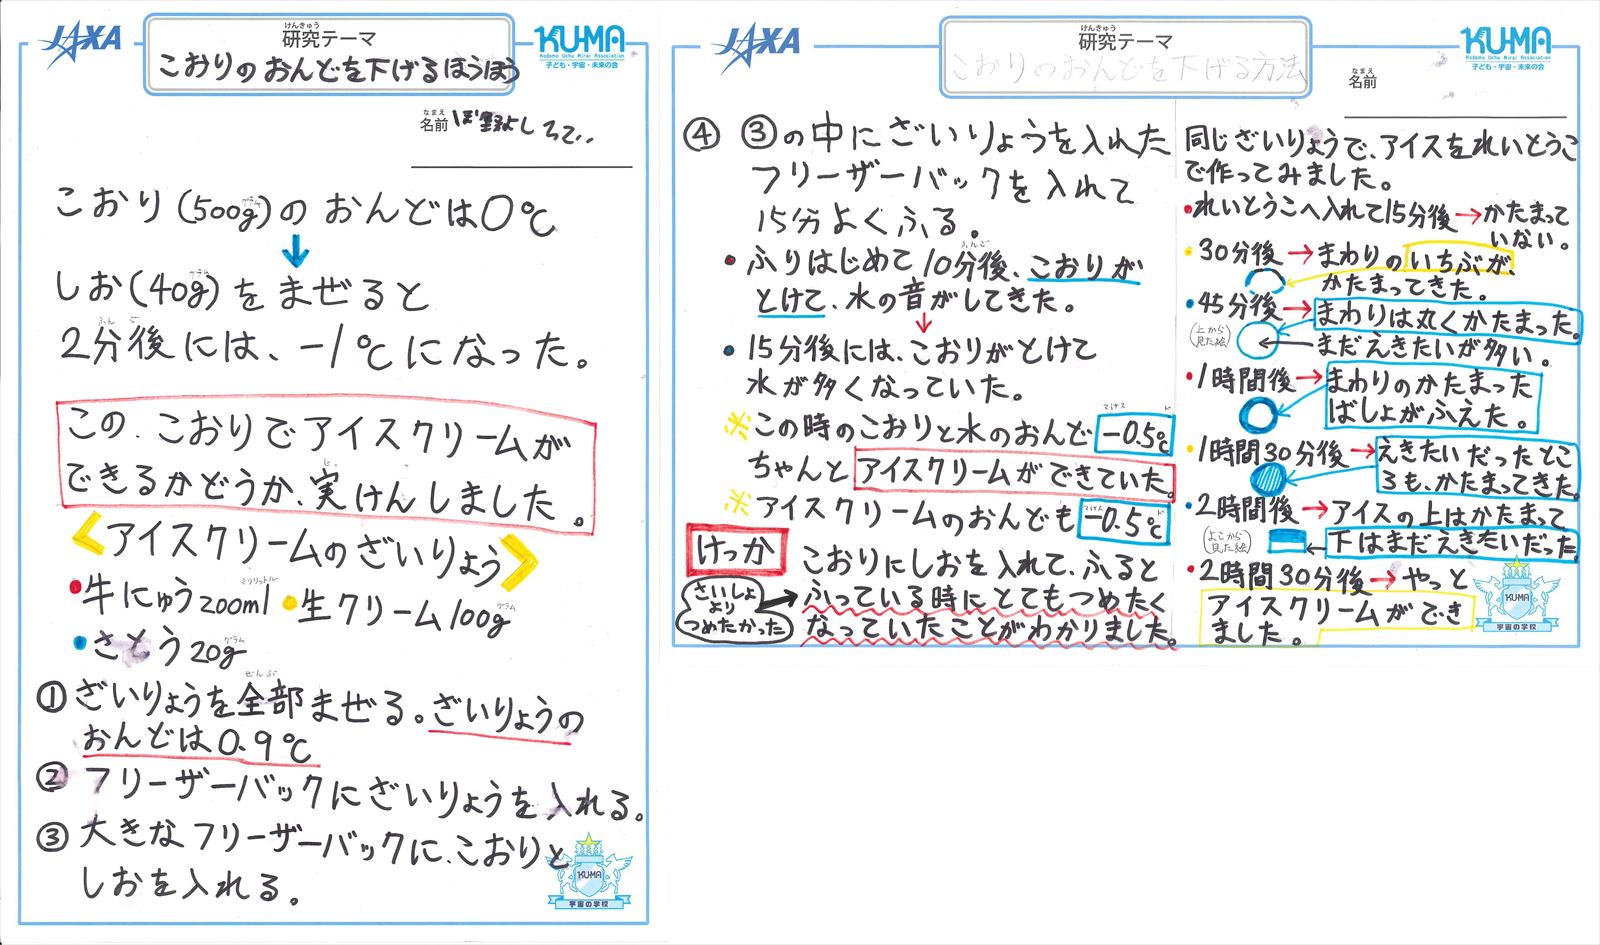 JAXA
けんきゅう
研究テーマ
こおりのおんどを下げるほうほう
KU-MA
Kodomo Uchu Mirai Association
子ども・宇宙・未来の会
なまえ
名前
こおり(500g)のおんどは0℃
グラム
しお(40g)をまぜると
グラム
2分後には、-1℃になった。
ふんご
この、こおりでアイスクリームが
できるかどうか、実けんしました。
じっ
<アイスクリームのざいりょう>
・牛にゅう200ml ・生クリーム100g
ミリリットル グラム
・さとう20g
グラム
①ざいりょうを全部まぜる。ざいりょうの
ぜんぶ
おんどは0.9℃
②フリーザーバックにざいりょうを入れる。
③大きなフリーザーバックに、こおりと
しおを入れる。
KUMA
宇宙の学校
JAXA
けんきゅう
研究テーマ
こおりのおんどを下げる方法
KU-MA
Kodomo Uchu Mirai Association
子ども・宇宙・未来の会
なまえ
名前
④ ③の中にざいりょうを入れた
フリーザーバックを入れて
15分よくふる。
・ふりはじめて10分後、こおりが
ふんご
とけて、水の音がしてきた。
・15分後には、こおりがとけて
水が多くなっていた。
※この時のこおりと水のおんど -0.5℃
ちゃんとアイスクリームができていた。
※アイスクリームのおんども -0.5℃
けっか
こおりにしおを入れて、ふると
さいしょ
より
つめたかった
ふっている時にとてもつめたく
なっていたことがわかりました。
同じざいりょうで、アイスをれいとうこ
で作ってみました。
・れいとうこへ入れて15分後→かたまって
いない。
・30分後→まわりのいちぶが、
かたまってきた。
・45分後→まわりは丸くかたまった。
(上から
見た絵)
まだえきたいが多い。
・1時間後→まわりのかたまった
ばしょがふえた。
・1時間30分後→えきたいだったとこ
ろも、かたまってきた。
・2時間後→アイスの上はかたまって
(よこから
見た絵)
下はまだえきたいだった。
・2時間30分後→やっと
アイスクリームができ
ました。
KUMA
宇宙の学校